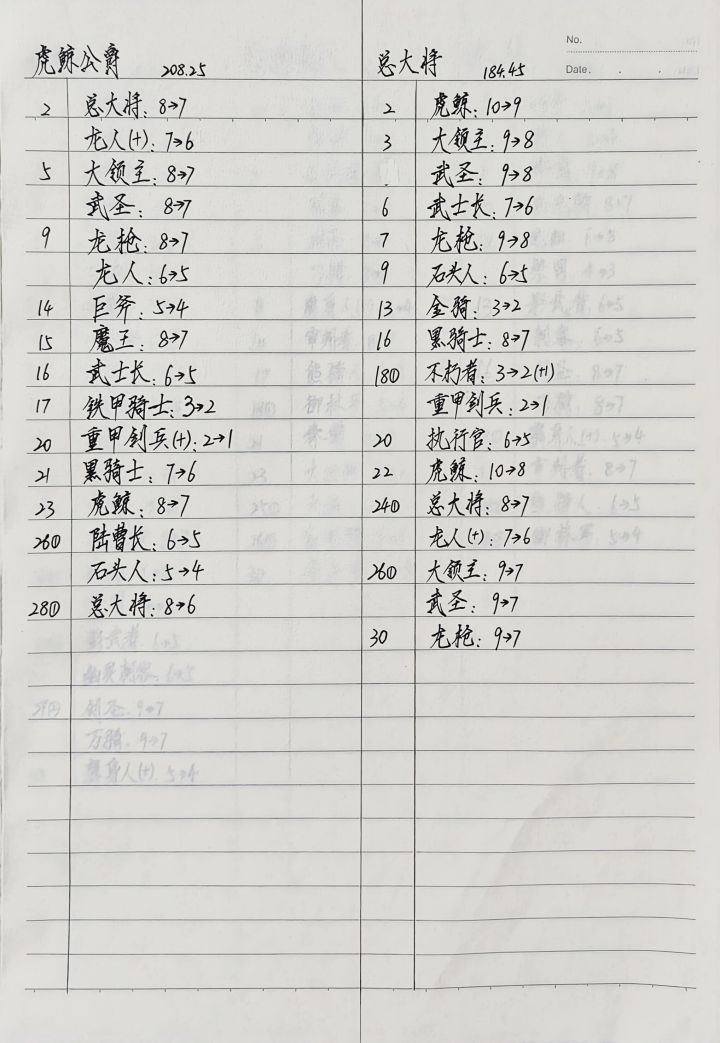 虎鲸公爵 208.25
2 总大将: 8→7
龙人(+): 7→6
5 大领主: 8→7
武圣: 8→7
9 龙枪: 8→7
龙人: 6→5
14 巨斧: 5→4
15 魔王: 8→7
16 武士长: 6→5
17 铁甲骑士: 3→2
20 重甲剑兵(+): 2→1
21 黑骑士: 7→6
23 虎鲸: 8→7
26① 陆曹长: 6→5
石头人: 5→4
28① 总大将: 8→6
No.
Date. . .
总大将 184.45
2 虎鲸: 10→9
3 大领主: 9→8
武圣: 9→8
6 武士长: 7→6
7 龙枪: 9→8
9 石头人: 6→5
13 金骑: 3→2
16 黑骑士: 8→7
18① 不朽者: 3→2(+1)
重甲剑兵: 2→1
20 执行官: 6→5
22 虎鲸: 10→8
24① 总大将: 8→7
龙人(+): 7→6
26① 大领主: 9→7
武圣: 9→7
30 龙枪: 9→7